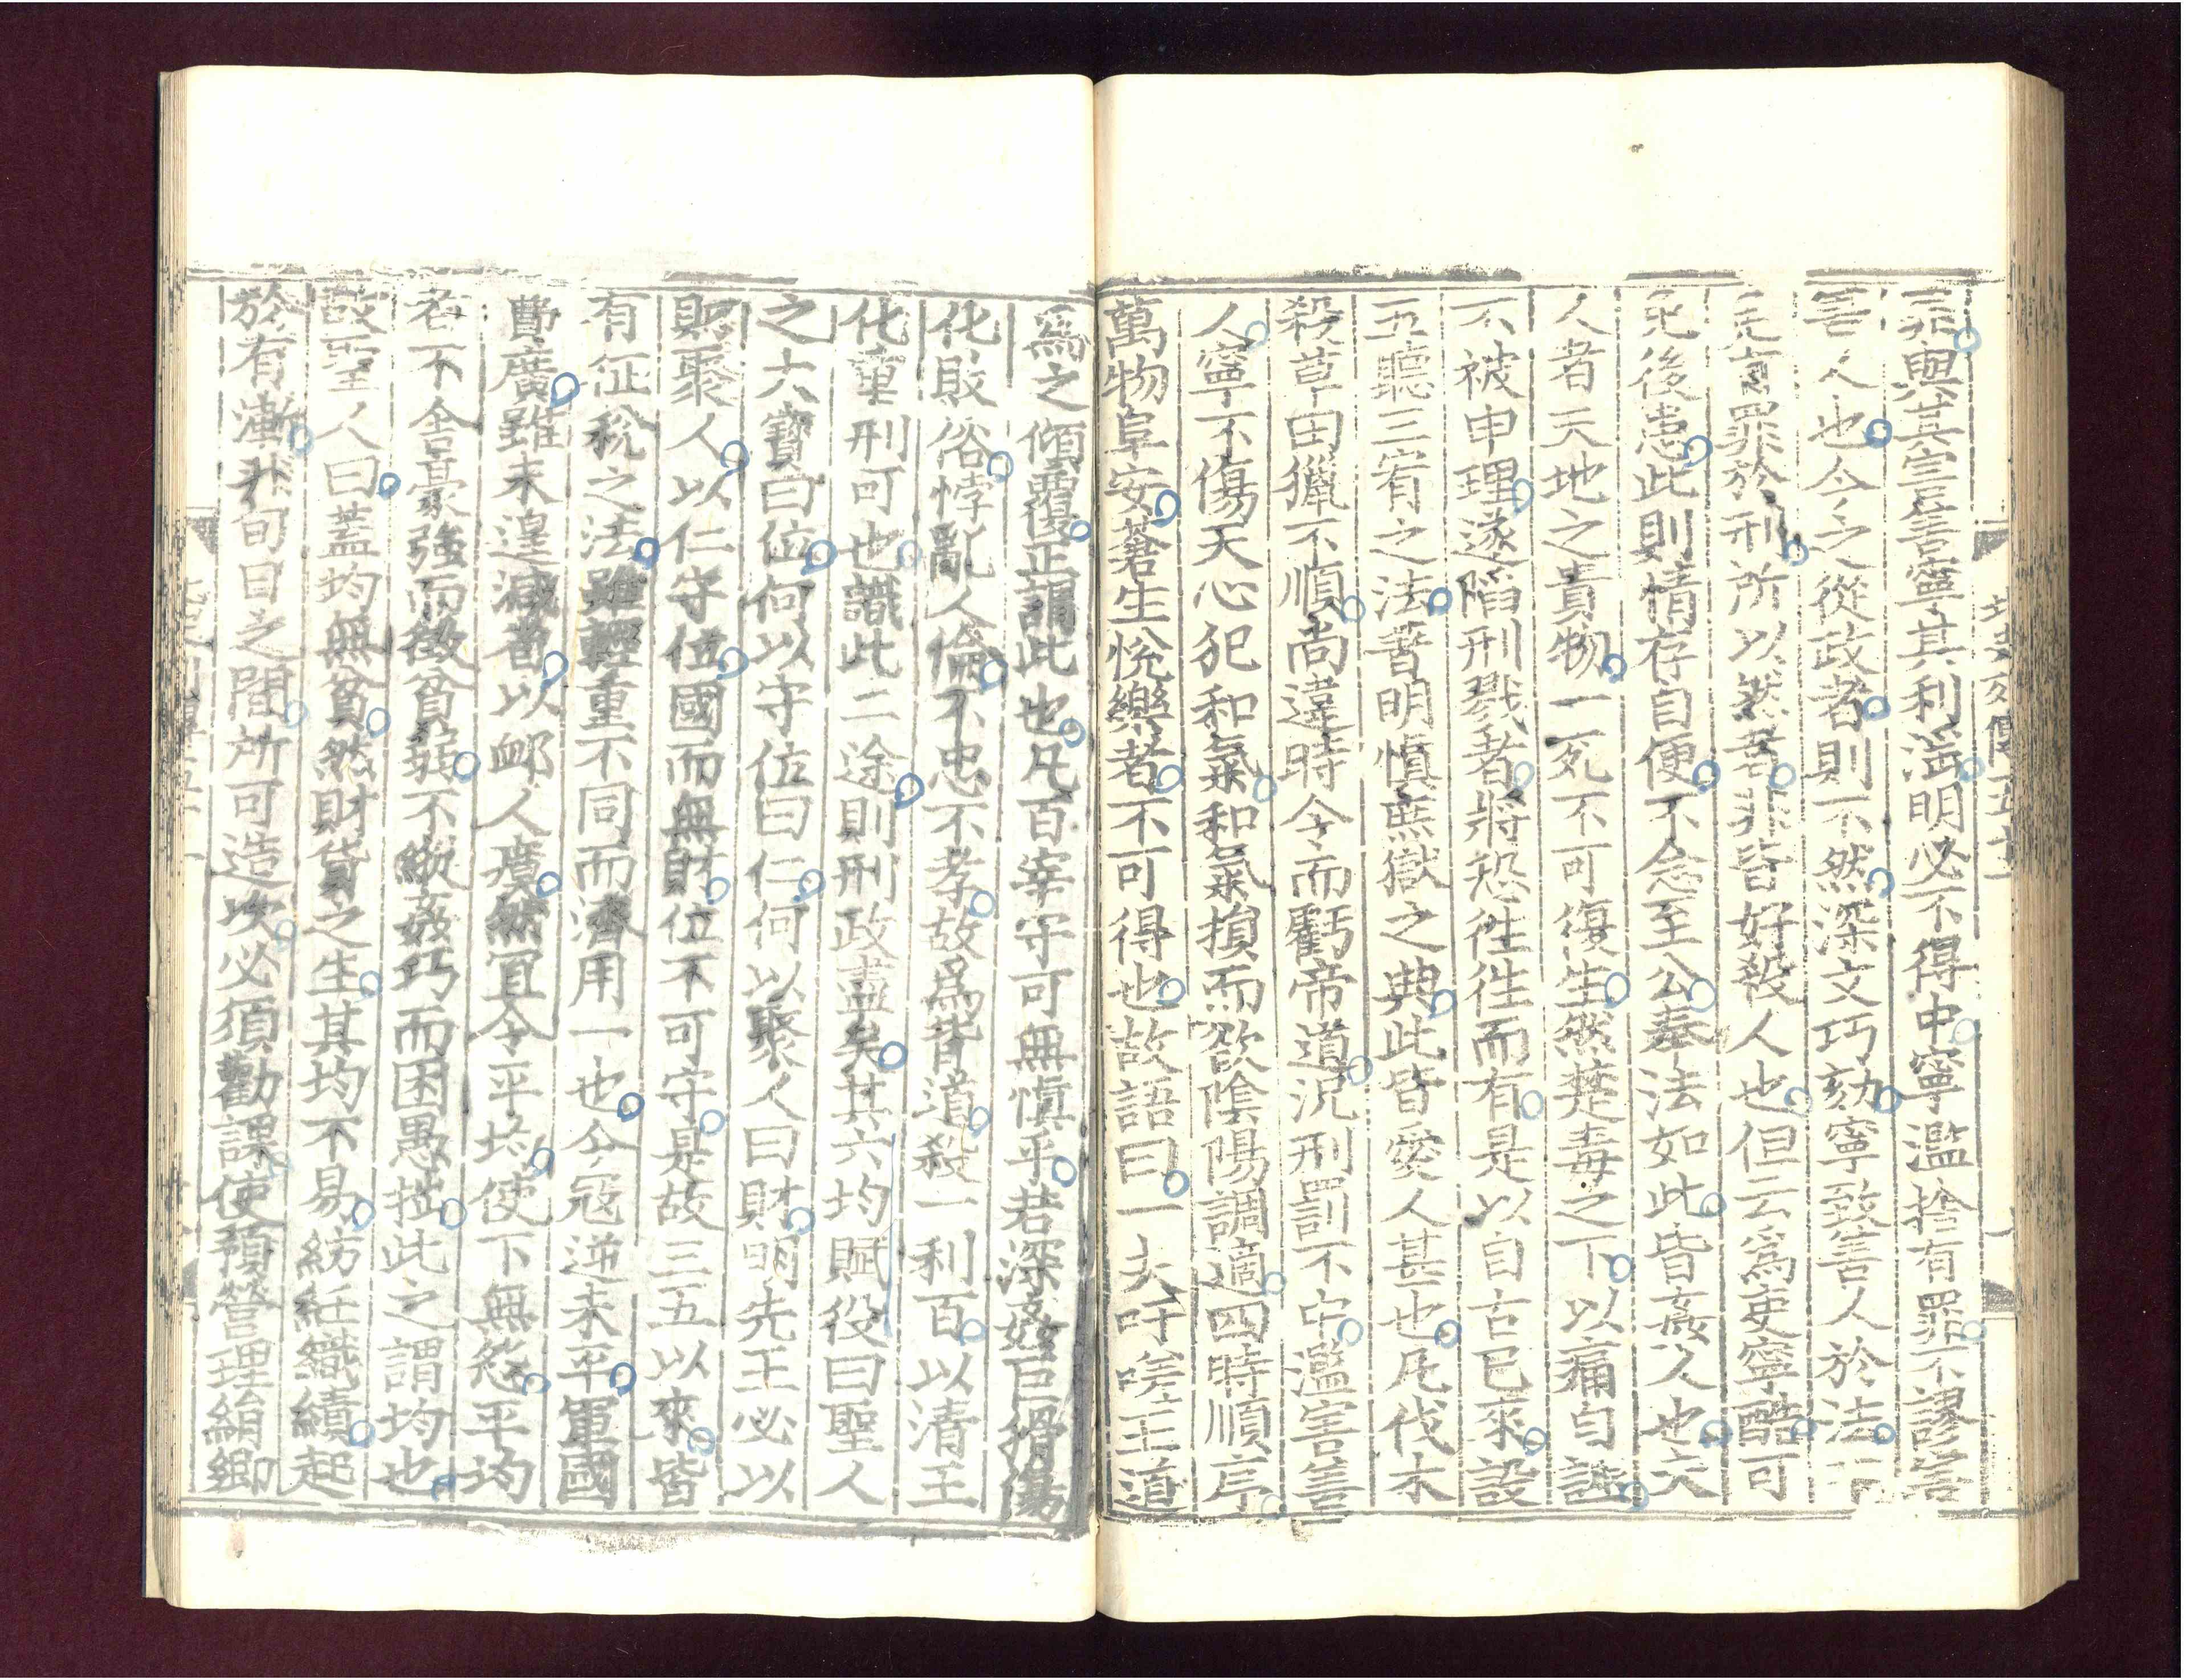 罪與其害善寧其利淫明必不得中寧濫捨有罪不謬害
善人也今之從政者則不然深文巧劾寧致善人於法不
免有罪於刑所以然者非皆好殺人也但云爲吏寧酷可
免後患此則情存自便不念至公奉法如此皆姦人也夫
人者天地之貴物一死不可復生然楚毒之下以痛自誣
不被申理遂陷刑戮者將恐往往而有是以自古已來設
五聽三宥之法著明慎庶獄之典此皆愛人甚也凡伐木
殺草田獵不順尚違時令而虧帝道況刑罰不中濫害善
人寧不傷天心犯和氣和氣損而欲陰陽調適四時順序
萬物阜安蒼生悅樂者不可得也故語曰一夫吁嗟王道
爲之傾覆正謂此也凡百宰守可無慎乎若深姦巨猾傷
化敗俗悖亂人倫不忠不孝故爲背道殺一利百以清王
化重刑可也識此二途則刑政盡矣其六均賦役曰聖人
之六寶曰位何以守位曰仁何以聚人曰財明先王必以
財聚人以仁守位國而無財位不可守是故三五以來皆
有征稅之法雖輕重不同而濟用一也今寇逆未平軍國
費廣雖未遑減省以卹人瘼然宜令平均使下無怨平均
者不舍豪強而徵貧弱不縱姦巧而困愚拙此之謂均也
故聖人曰蓋均無貧然財貨之生其均不易紡紝織績起
於有漸非旬日之間所可造次必須勸課使預營理絹鄉